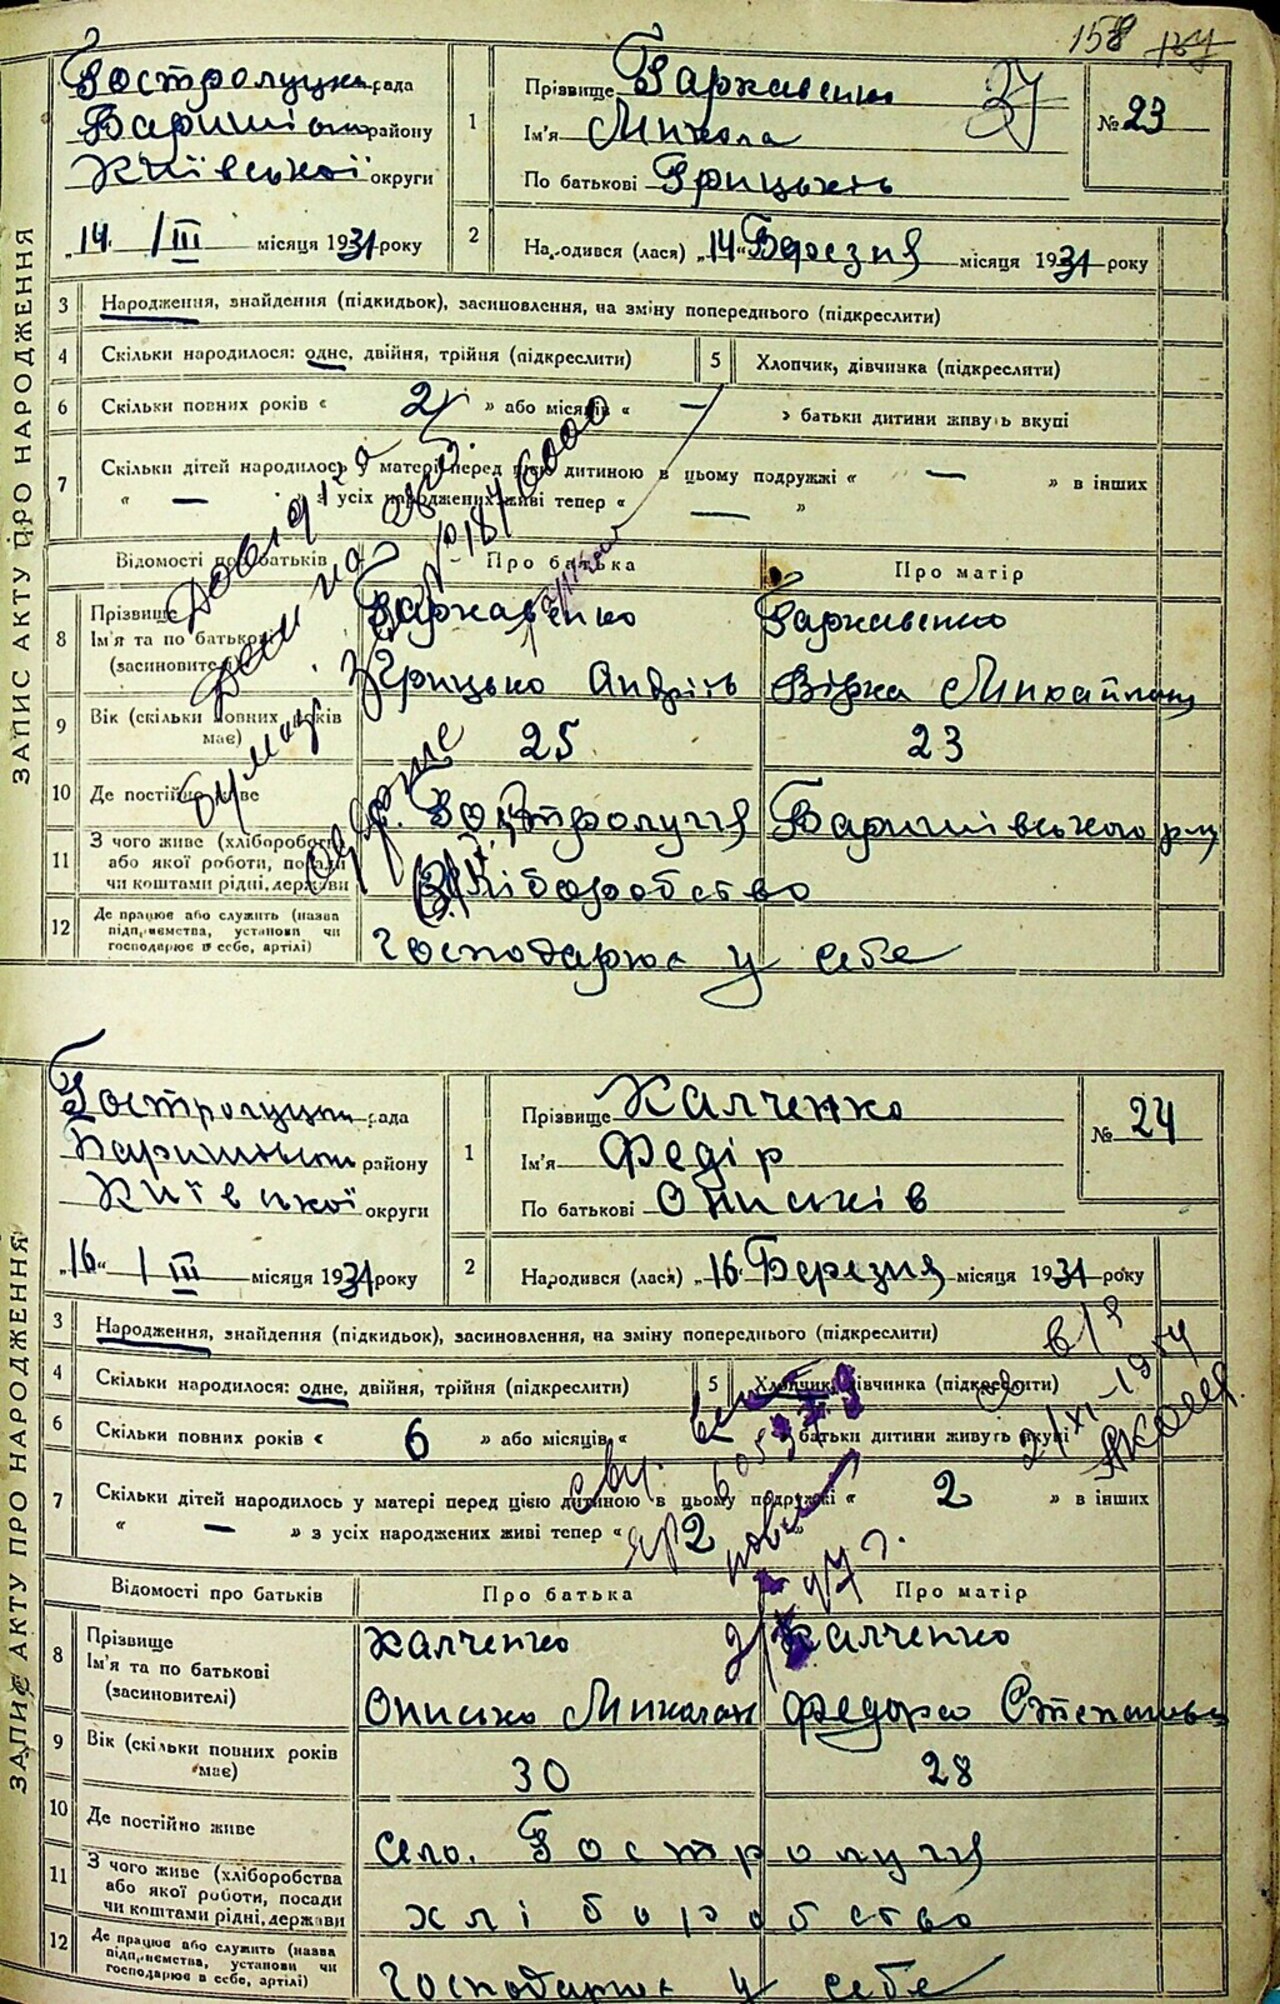 158 157
ЗАПИС АКТУ ПРО НАРОДЖЕННЯ
Гостролуцька рада
Баришівськ району
Київської округи
„14“ / III місяця 1931 року
1 Прізвище Гаркавенко 37
Ім'я Микола
По батькові Грицьків
№ 23
2 Народився (лася) „14“ Березня місяця 1931 року
3 Народження, знайдення (підкидьок), засиновлення, на зміну попереднього (підкреслити)
4 Скільки народилося: одне, двійня, трійня (підкреслити) 5 Хлопчик, дівчинка (підкреслити)
6 Скільки повних років « 2 » або місяців « — » батьки дитини живуть вкупі
7 Скільки дітей народилось у матері перед цією дитиною в цьому подружжі « — » в інших
« — » з усіх народжених живі тепер « — »
Відомості про батьків Про батька Про матір
8 Прізвище Гаркавенко Гаркавенко
Ім'я та по батькові
(засиновителі) Грицько Андрі Вірка Михайлов
9 Вік (скільки повних років має) 25 23
10 Де постійно живе Гостролуччя Баришівського р
11 З чого живе (хліборобства
або якої роботи, посади
чи коштами рідні, держави Хліборобство
12 Де працює або служить (назва
підприємства, установи чи
господарює в себе, артілі) Господарює у себе
ЗАПИС АКТУ ПРО НАРОДЖЕННЯ
Гостролуцьк рада
Баришівськ району
Київської округи
„16“ / III місяця 1931 року
1 Прізвище Калченко
Ім'я Федір
По батькові Ониськів
№ 24
2 Народився (лася) „16“ Березня місяця 1931 року
3 Народження, знайдення (підкидьок), засиновлення, на зміну попереднього (підкреслити)
4 Скільки народилося: одне, двійня, трійня (підкреслити) 5 Хлопчик, дівчинка (підкреслити)
6 Скільки повних років « 6 » або місяців « батьки дитини живуть вкупі
7 Скільки дітей народилось у матері перед цією дитиною в цьому подружжі « 2 » в інших
« — » з усіх народжених живі тепер « 2 »
Відомості про батьків Про батька Про матір
8 Прізвище Калченко Калченко
Ім'я та по батькові
(засиновителі) Онисько Миколов Федора Степанівн
9 Вік (скільки повних років має) 30 28
10 Де постійно живе село. Гостролуччя
11 З чого живе (хліборобства
або якої роботи, посади
чи коштами рідні, держави хліборобство
12 Де працює або служить (назва
підприємства, установи чи
господарює в себе, артілі) Господарює у себе